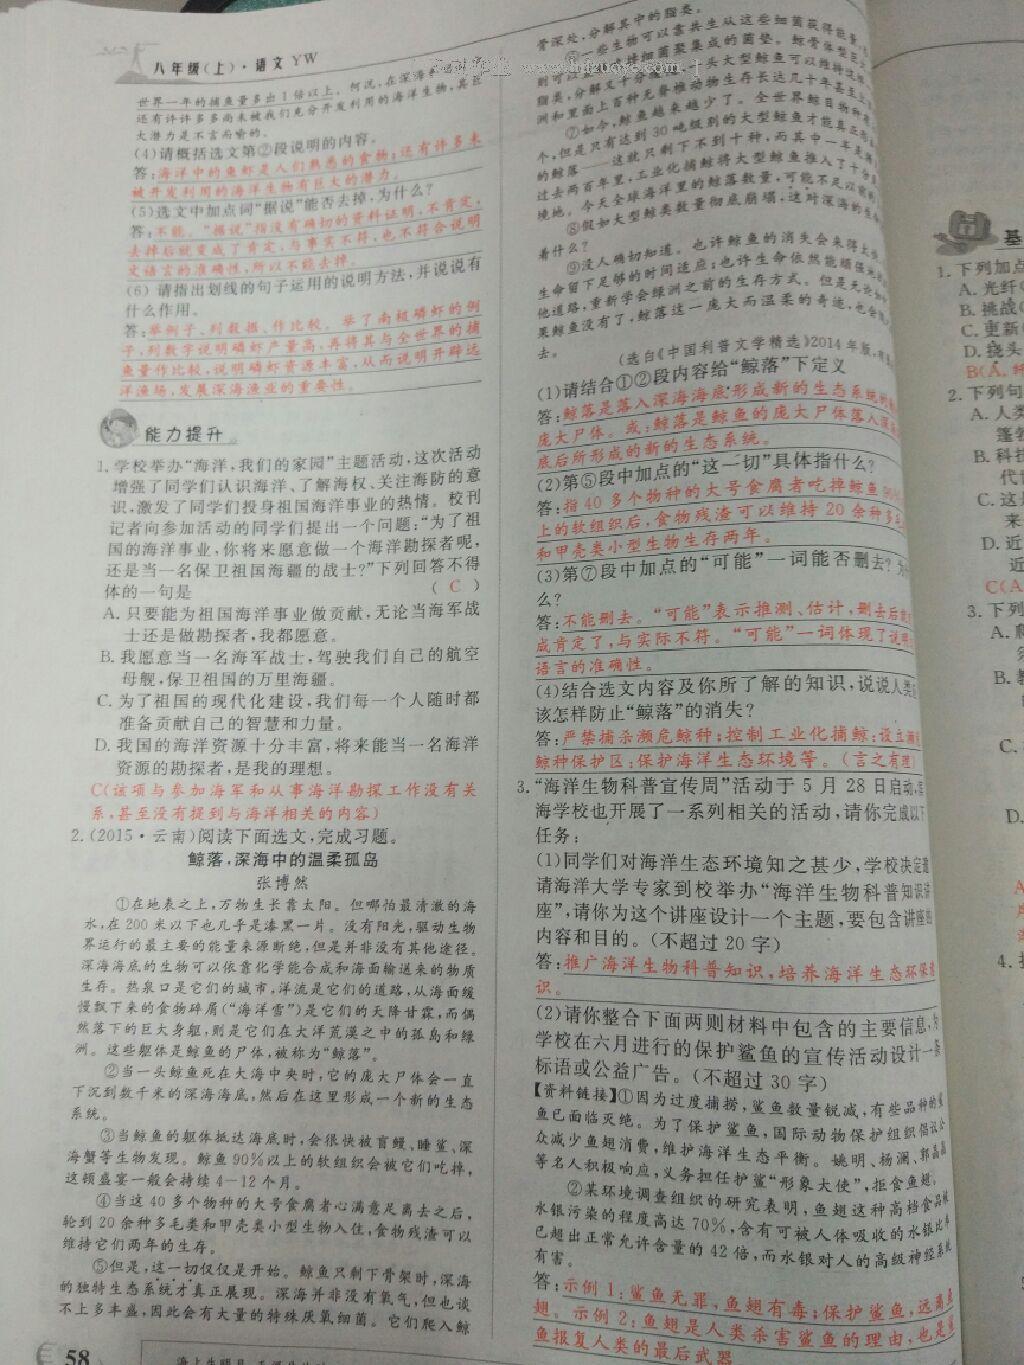 八年级(上)·语文 YW
世界一年的捕鱼量多出1倍以上。何况,在深海
还有许许多多尚未被我们充分开发利用的海洋生物,其巨
大潜力是不言而喻的。
(4)请概括选文第②段说明的内容。
答:海洋中的鱼虾是人们熟悉的食物;还有许多未
被开发利用的海洋生物有巨大的潜力。
(5)选文中加点词“据说”能否去掉,为什么?
答:不能。“据说”指没有确切的资料证明,不肯定,
去掉后就变成了肯定,与事实不符,也不符合说明
文语言的准确性,所以不能去掉。
(6) 请指出划线的句子运用的说明方法,并说说有
什么作用。
答:举例子、列数据、作比较。举了南极磷虾的例
子,列数字说明磷虾产量高,再将其与全世界的捕
鱼量作比较,说明磷虾资源丰富,从而说明开辟远
洋渔场,发展深海渔业的重要性。
能力提升
1.学校举办“海洋,我们的家园”主题活动,这次活动
增强了同学们认识海洋、了解海权、关注海防的意
识,激发了同学们投身祖国海洋事业的热情。校刊
记者向参加活动的同学们提出一个问题:“为了祖
国的海洋事业,你将来愿意做一个海洋勘探者呢,
还是当一名保卫祖国海疆的战士?”下列回答不得
体的一句是 ( C )
A.只要能为祖国海洋事业做贡献,无论当海军战
士还是做勘探者,我都愿意。
B.我愿意当一名海军战士,驾驶我们自己的航空
母舰,保卫祖国的万里海疆。
C.为了祖国的现代化建设,我们每一个人随时都
准备贡献自己的智慧和力量。
D.我国的海洋资源十分丰富,将来能当一名海洋
资源的勘探者,是我的理想。
C(该项与参加海军和从事海洋勘探工作没有关
系,甚至没有提到与海洋相关的内容)
2.(2015·云南)阅读下面选文,完成习题。
鲸落,深海中的温柔孤岛
张博然
①在地表之上,万物生长靠太阳。但哪怕最清澈的海
水,在200米以下也几乎是漆黑一片。没有阳光,驱动生物
界运行的最主要的能量来源断绝,但是并非没有其他途径。
深海海底的生物可以依靠化学能合成和海面输送来的物质
生存。热泉口是它们的城市,洋流是它们的道路,从海面缓
慢飘下来的食物碎屑(“海洋雪”)是它们的天降甘霖,而偶
然落下的巨大身躯,则是它们在大洋荒漠之中的孤岛和绿
洲。这些躯体是鲸鱼的尸体,被称为“鲸落”。
②当一头鲸鱼死在大海中央时,它的庞大尸体会一直
下沉到数千米的深海海底,然后在这里形成一个新的生态
系统。
③当鲸鱼的躯体抵达海底时,会很快被盲鳗、睡鲨、深
海蟹等生物发现。鲸鱼90%以上的软组织会被它们吃掉,
这顿盛宴一般会持续4—12个月。
④当这40多个物种的大号食腐者心满意足离去之后,
轮到20余种多毛类和甲壳类小型生物入住,食物残渣可以
维持它们两年的生存。
⑤但是,这一切仅仅是开始。鲸鱼只剩下骨架时,深海
的独特生态系统才真正展现。深海并非没有氧气,但也谈
不上多丰盛,因此会有大量的特殊厌氧细菌。它们爬入鲸
58
骨深处,分解其中的脂类。
⑥一些生物可以靠共生从这些细菌获得能量,
则可以
脂类,分解又十分
洲和里面上百种无脊椎动物生存长达几十年甚至上
⑦如今,鲸鱼越来越少了。全世界鲸目物种有
个,但是只有达到30吨级别的大型鲸鱼才能真正形
的鲸落——这就只剩下不到十种,而其中一半是濒
过去两百年里,工业化捕鲸将大型鲸鱼推入了十分
境地。今天全球海洋里的鲸落数量,可能不足以前的
⑧假如大型鲸类数量彻底崩塌,这对深海的生命
着什么?
⑨没人确切知道。也许鲸鱼的消失会来得上
生命留下足够的时间适应;也许生命依然能顽强地
他道路,重新学会绿洲之前的生存方式。但是无论如
果鲸鱼没有了,鲸落这一庞大而温柔的奇迹,也会
去。
(选自《中国科普文学精选》2014年版,有
(1)请结合①②段内容给“鲸落”下定义
答:鲸落是落入深海海底形成新的生态系统的
庞大尸体。或:鲸落是鲸鱼的庞大尸体落入深海
底后所形成的新的生态系统。
(2)第⑤段中加点的“这一切”具体指什么?
答:指40多个物种的大号食腐者吃掉鲸鱼90%
上的软组织后,食物残渣可以维持20余种多毛
和甲壳类小型生物生存两年。
(3)第⑦段中加点的“可能”一词能否删去?为什
么?
答:不能删去。“可能”表示推测、估计,删去后就
成肯定了,与实际不符。“可能”一词体现了说明
语言的准确性。
(4)结合选文内容及你所了解的知识,说说人类应
该怎样防止“鲸落”的消失?
答:严禁捕杀濒危鲸种;控制工业化捕鲸;设立濒危
鲸种保护区;保护海洋生态环境等。(言之有理)
3.“海洋生物科普宣传周”活动于5月28日启动,
海学校也开展了一系列相关的活动,请你完成以下
任务:
(1)同学们对海洋生态环境知之甚少,学校决定邀
请海洋大学专家到校举办“海洋生物科普知识讲
座”,请你为这个讲座设计一个主题,要包含讲座的
内容和目的。(不超过20字)
答:推广海洋生物科普知识,培养海洋生态环保意
识。
(2)请你整合下面两则材料中包含的主要信息,为
学校在六月进行的保护鲨鱼的宣传活动设计一条
标语或公益广告。(不超过30字)
【资料链接】①因为过度捕捞,鲨鱼数量锐减,有些品种的鲨
鱼已面临灭绝。为了保护鲨鱼,国际动物保护组织倡议公
众减少鱼翅消费,维护海洋生态平衡。姚明、杨澜、郭晶晶
等名人积极响应,义务担任护鲨“形象大使”,拒食鱼翅。
②某环境调查组织的研究表明,鱼翅这种高档食品被
水银污染的程度高达70%,含有可被人体吸收的水银比率
已超出正常允许含量的42倍,而水银对人的高级神经系统
有害。
答:示例1:鲨鱼无罪,鱼翅有毒;保护鲨鱼,远离鱼
翅。示例2:鱼翅是人类杀害鲨鱼的理由,也是鲨
鱼报复人类的最后武器
基
1.下列加点
A.光纤
B.挑战
C.更新
D.挠头
2.下列句
A.人类
蓬勃
B.科技
代
C.这
来
D.近
近
3.下列
A.
B.
C.
D.
4.